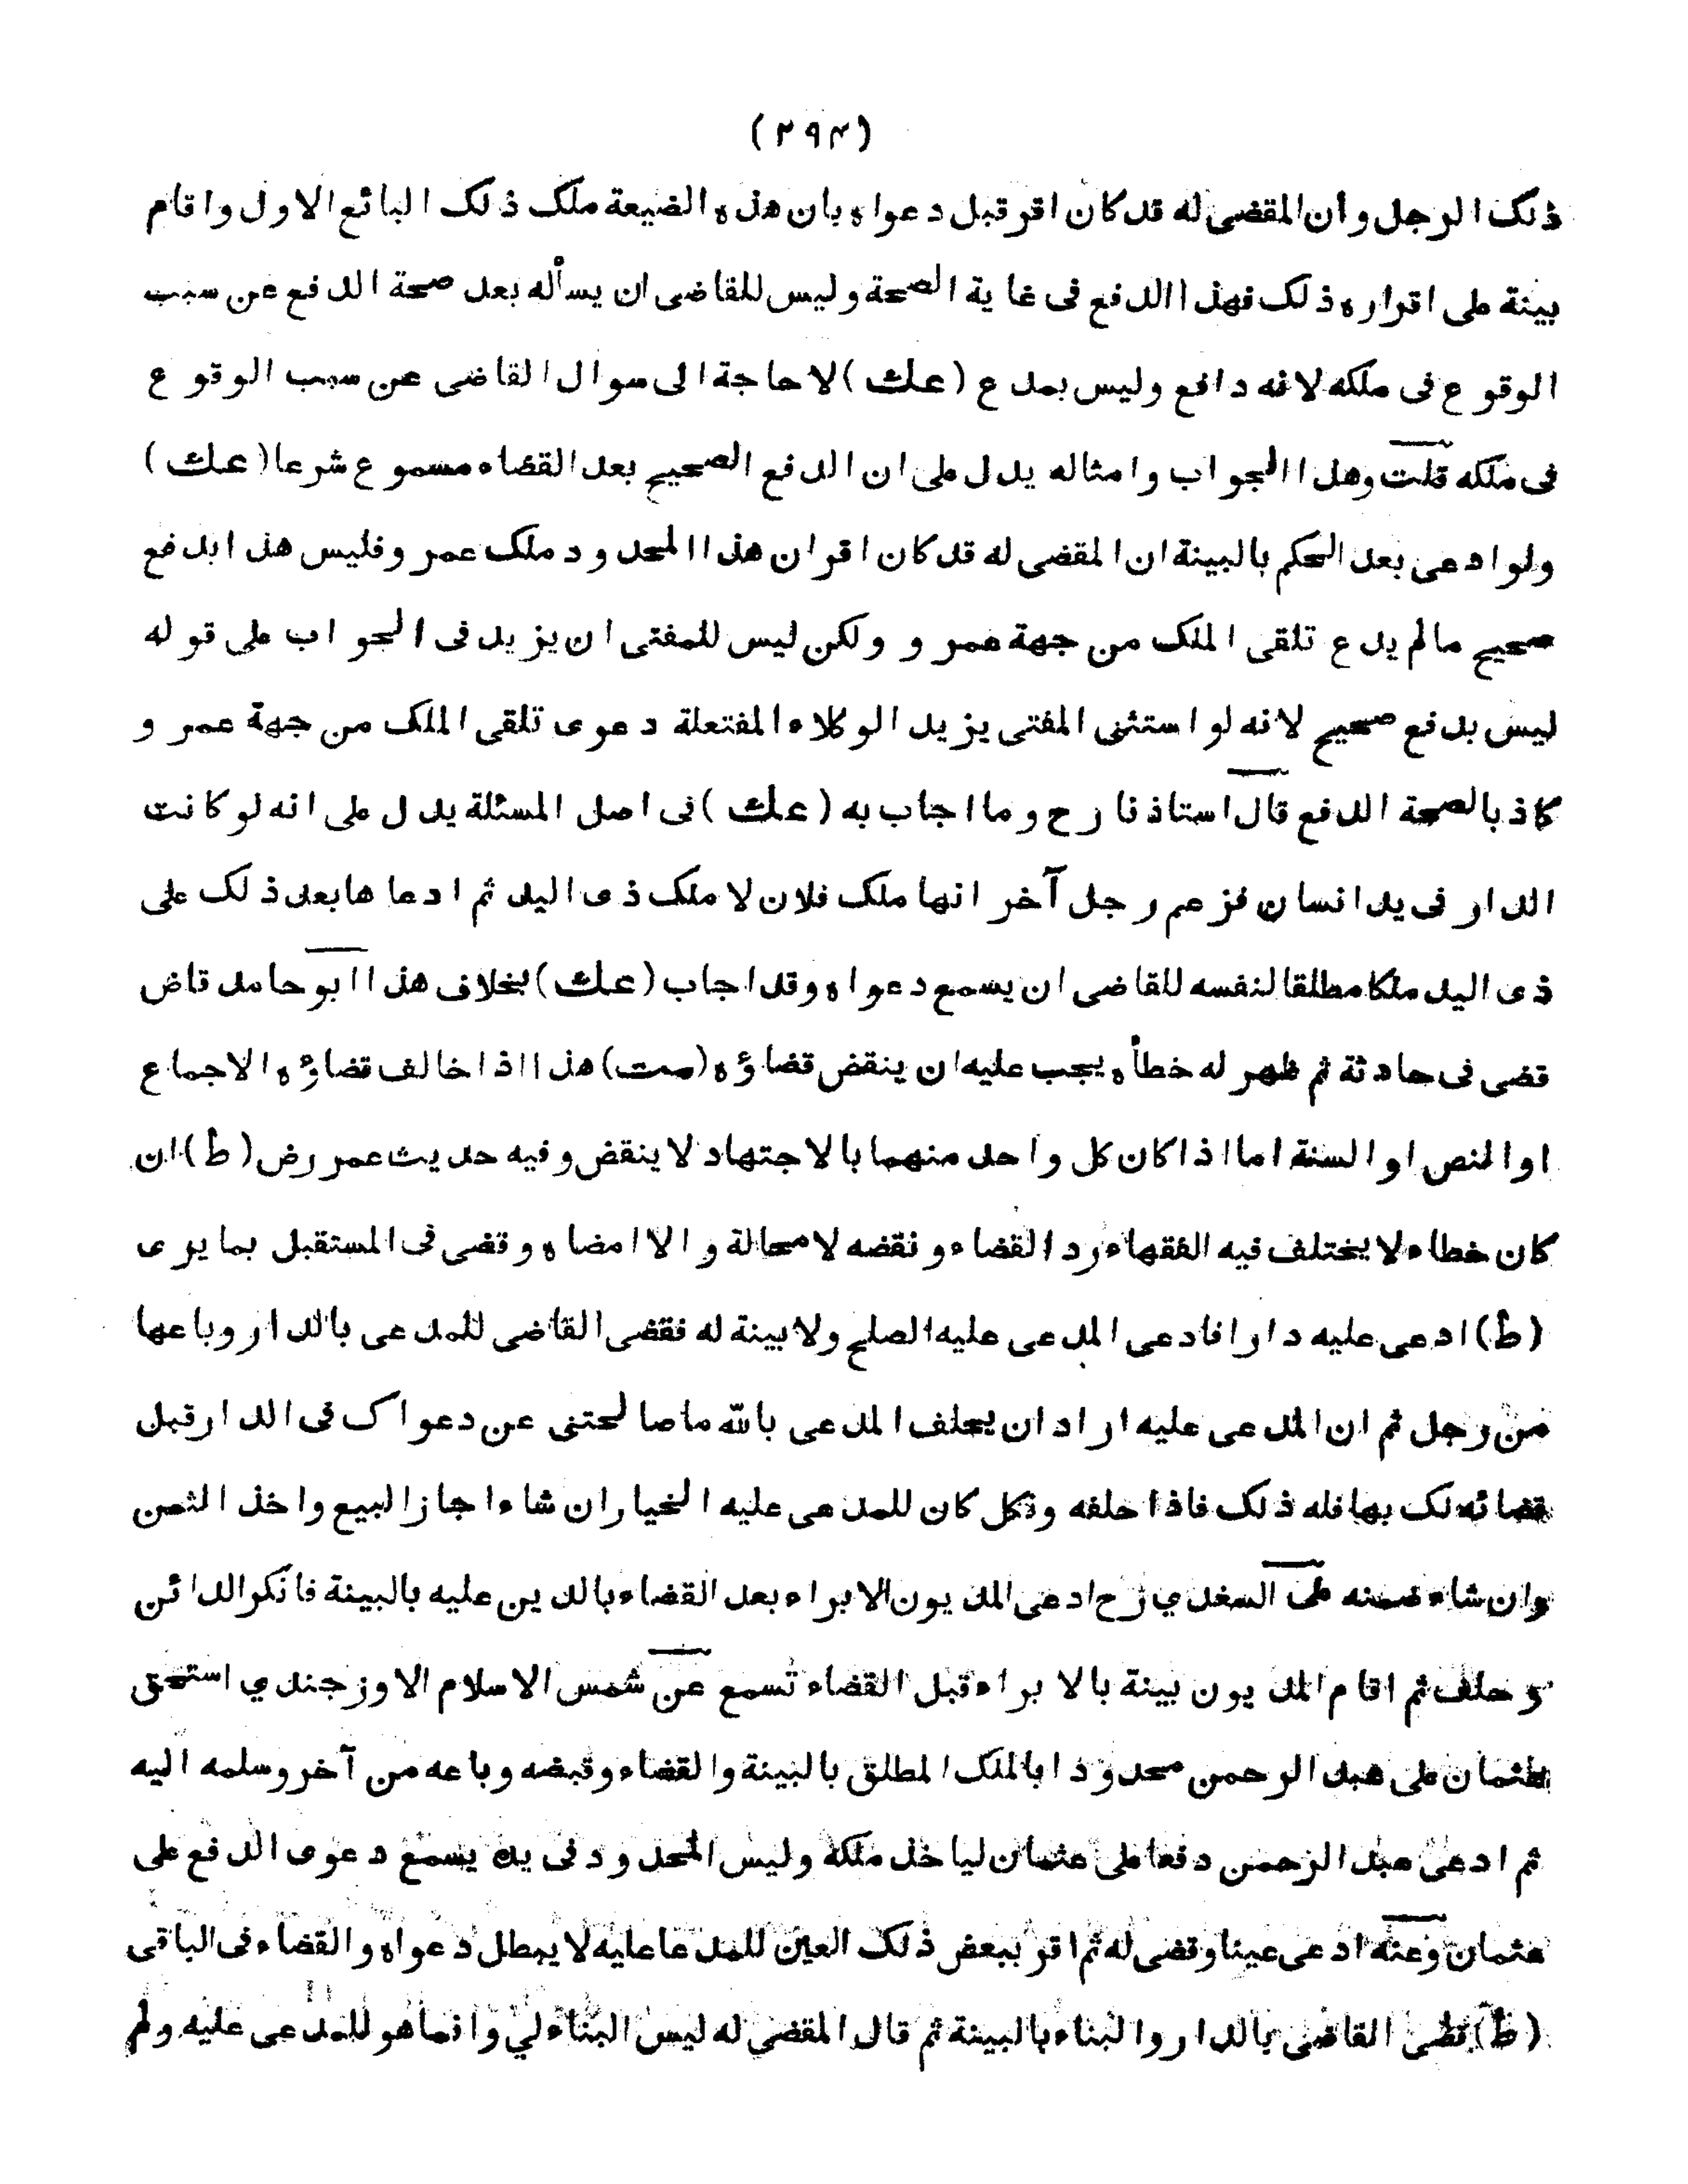 (٢٩٤)
ذلك الرجل وان المقضى له قد كان اقر قبل دعواه بان هذه الضيعة ملك ذلك البائع الاول واقام
بينة على اقراره ذلك فهذا الدفع فى غاية الصحة وليس للقاضى ان يسأله بعد صحة الدفع عن سبب
الوقوع فى ملكه لانه دافع وليس بمدع (عك) لا حاجة الى سوال القاضى عن سبب الوقوع
فى ملكه قلت وهذا الجواب وامثاله يدل على ان الدفع الصحيح بعد القضاء مسموع شرعا (عك)
ولو ادعى بعد الحكم بالبينة ان المقضى له قد كان اقر ان هذا المحدود ملك عمرو فليس هذا بدفع
صحيح مالم يدع تلقى الملك من جهة عمرو ولكن ليس للمفتى ان يزيد فى الجواب على قوله
ليس بدفع صحيح لانه لو استثنى المفتى يزيد الوكلاء المفتعلة دعوى تلقى الملك من جهة عمرو
كاذبا لصحة الدفع قال استاذنا رح وما اجاب به (عك) فى اصل المسئلة يدل على انه لو كانت
الدار فى يد انسان فزعم رجل آخر انها ملك فلان لا ملك ذى اليد ثم ادعاها بعد ذلك على
ذى اليد ملكا مطلقا لنفسه للقاضى ان يسمع دعواه وقد اجاب (عك) بخلاف هذا ابو حامد قاض
قضى فى حادثة ثم ظهر له خطأه يجب عليه ان ينقض قضاؤه (مت) هذا اذا خالف قضاؤه الاجماع
او النص او السنة اما اذا كان كل واحد منهما بالاجتهاد لا ينقض وفيه حديث عمر رض (ط) ان
كان خطاء لا يختلف فيه الفقهاء رد القضاء ونقضه لا محالة والا امضاه وقضى فى المستقبل بما يرى
(ط) ادعى عليه دارا فادعى المدعى عليه الصلح ولا بينة له فقضى القاضى للمدعى بالدار وباعها
من رجل ثم ان المدعى عليه اراد ان يحلف المدعى بالله ما صالحتنى عن دعواك فى الدار قبل
قضائه لك بها فله ذلك فاذا حلفه ونكل كان للمدعى عليه الخيار ان شاء اجاز البيع واخذ الثمن
وان شاء ضمنه على السغدي رح ادعى المديون الابراء بعد القضاء بالدين عليه بالبينة فانكر الدائن
وحلف ثم اقام المديون بينة بالابراء قبل القضاء تسمع عن شمس الاسلام الاوزجندي استحق
عثمان على عبد الرحمن محدودا بالملك المطلق بالبينة والقضاء وقبضه وباعه من آخر وسلمه اليه
ثم ادعى عبد الرحمن دفعا على عثمان لياخذ ملكه وليس المحدود فى يده يسمع دعوى الدفع على
عثمان وعنه ادعى عينا وقضى له ثم اقر ببعض ذلك العين للمدعا عليه لا يبطل دعواه والقضاء فى الباقى
(ظ) قضى القاضى بالدار والبناء بالبينة ثم قال المقضى له ليس البناء لي وانما هو للمدعى عليه ولم